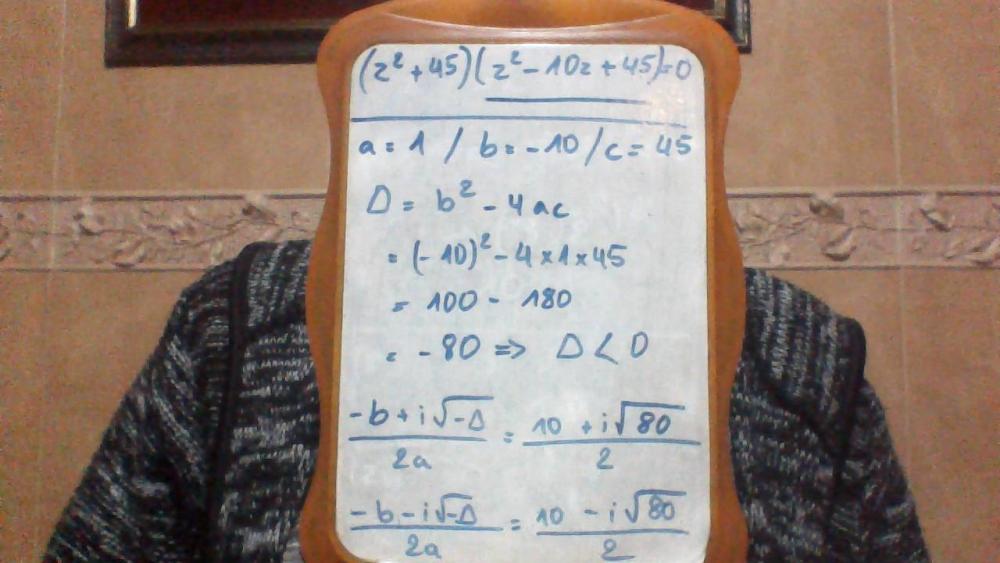 (z² + 45)(z² - 10z + 45) = 0
a = 1 / b = -10 / c = 45
Δ = b² - 4ac
= (-10)² - 4 × 1 × 45
= 100 - 180
= -80 => Δ < 0
(-b + i√-Δ)/2a = (10 + i√80)/2
(-b - i√-Δ)/2a = (10 - i√80)/2